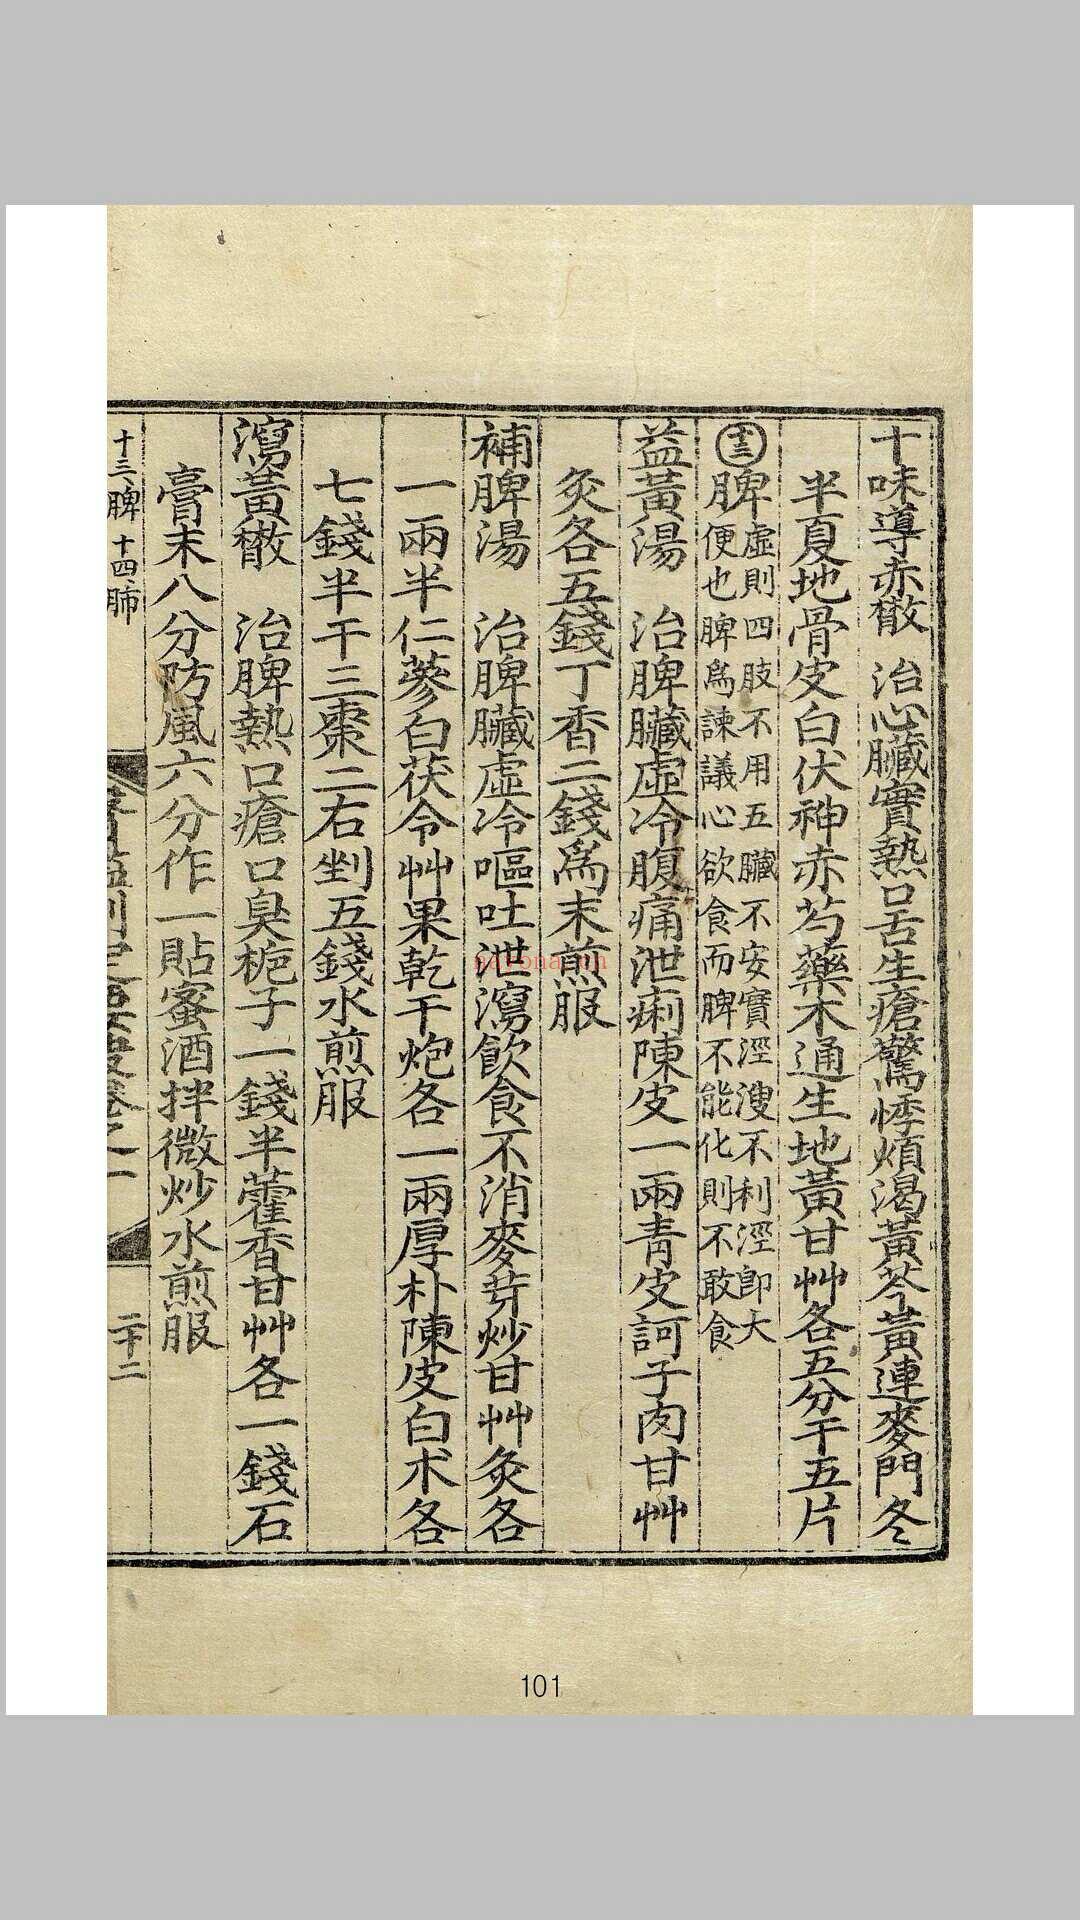 十味導赤散　治心臟實熱口舌生瘡驚悸煩渴黃芩黃連麥門冬
半夏地骨皮白伏神赤芍藥木通生地黃甘艸各五分干五片
十三脾虛則四肢不用五臟不安實涇溲不利涇卽大
便也脾爲諫議心欲食而脾不能化則不敢食
益黃湯　治脾臟虛冷腹痛泄痢陳皮一兩靑皮訶子肉甘艸
灸各五錢丁香二錢爲末煎服
補脾湯　治脾臟虛冷嘔吐泄瀉飮食不消麥芽炒甘艸灸各
一兩半仁蔘白茯令艸果乾干炮各一兩厚朴陳皮白朮各
七錢半干三棗二右剉五錢水煎服
瀉黃散　治脾熱口瘡口臭梔子一錢半藿香甘艸各一錢石
膏末八分防風六分作一貼蜜酒拌微炒水煎服
十三脾 十四肺
二十二
navona.cn
101